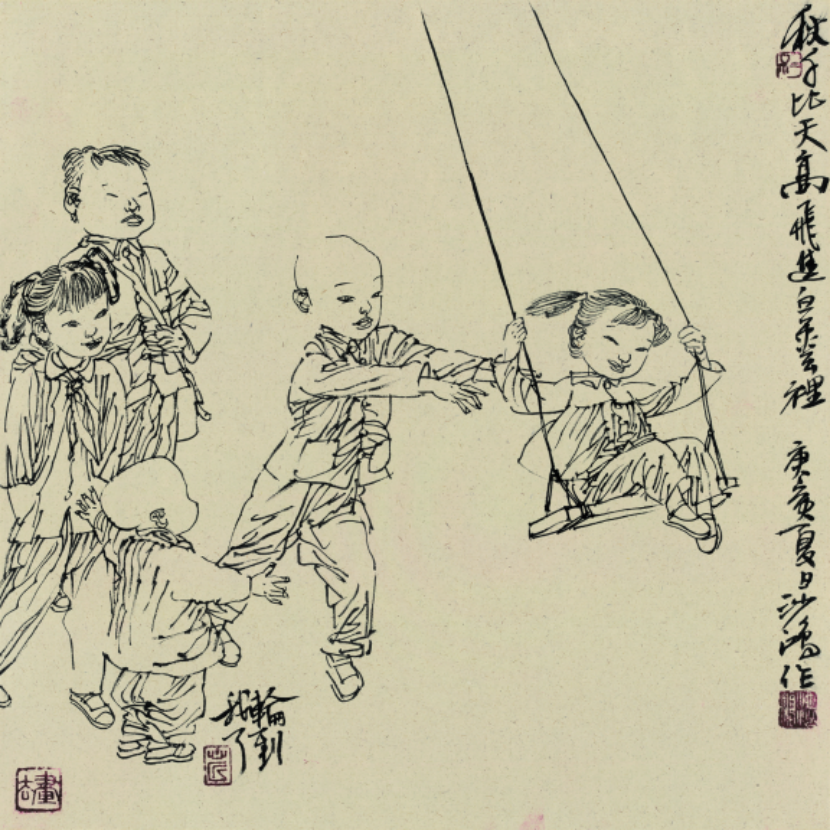 秋千比天高飛進白雲裡 庚寅夏日沙鴻作
輪到
我了